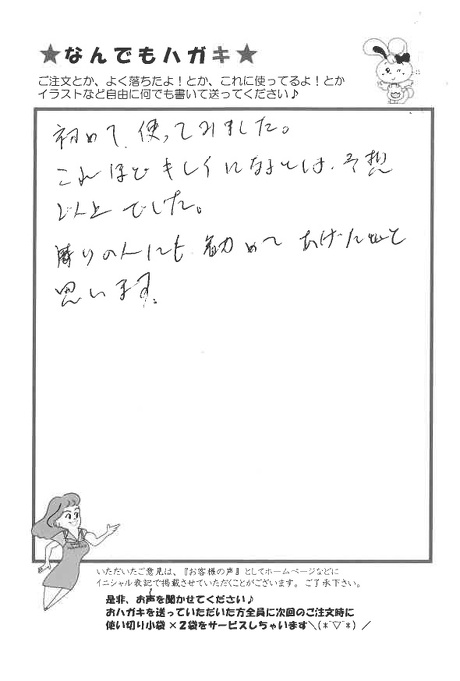 ★なんでもハガキ★
ご注文とか、よく落ちたよ！とか、これに使ってるよ！とか
イラストなど自由に何でも書いて送ってください♪
初めて、使ってみました。
これほどキレイになるとは、予想
以上でした。
隣りの人にも勧めてあげたいと
思います。
いただいたご意見は、『お客様の声』としてホームページなどに
イニシャル表記で掲載させていただくことがございます。ご了承下さい。
是非、お声を聞かせてください♪
おハガキを送っていただいた方全員に次回のご注文時に
使い切り小袋×2袋をサービスしちゃいます＼(*ˆ▽ˆ*)／